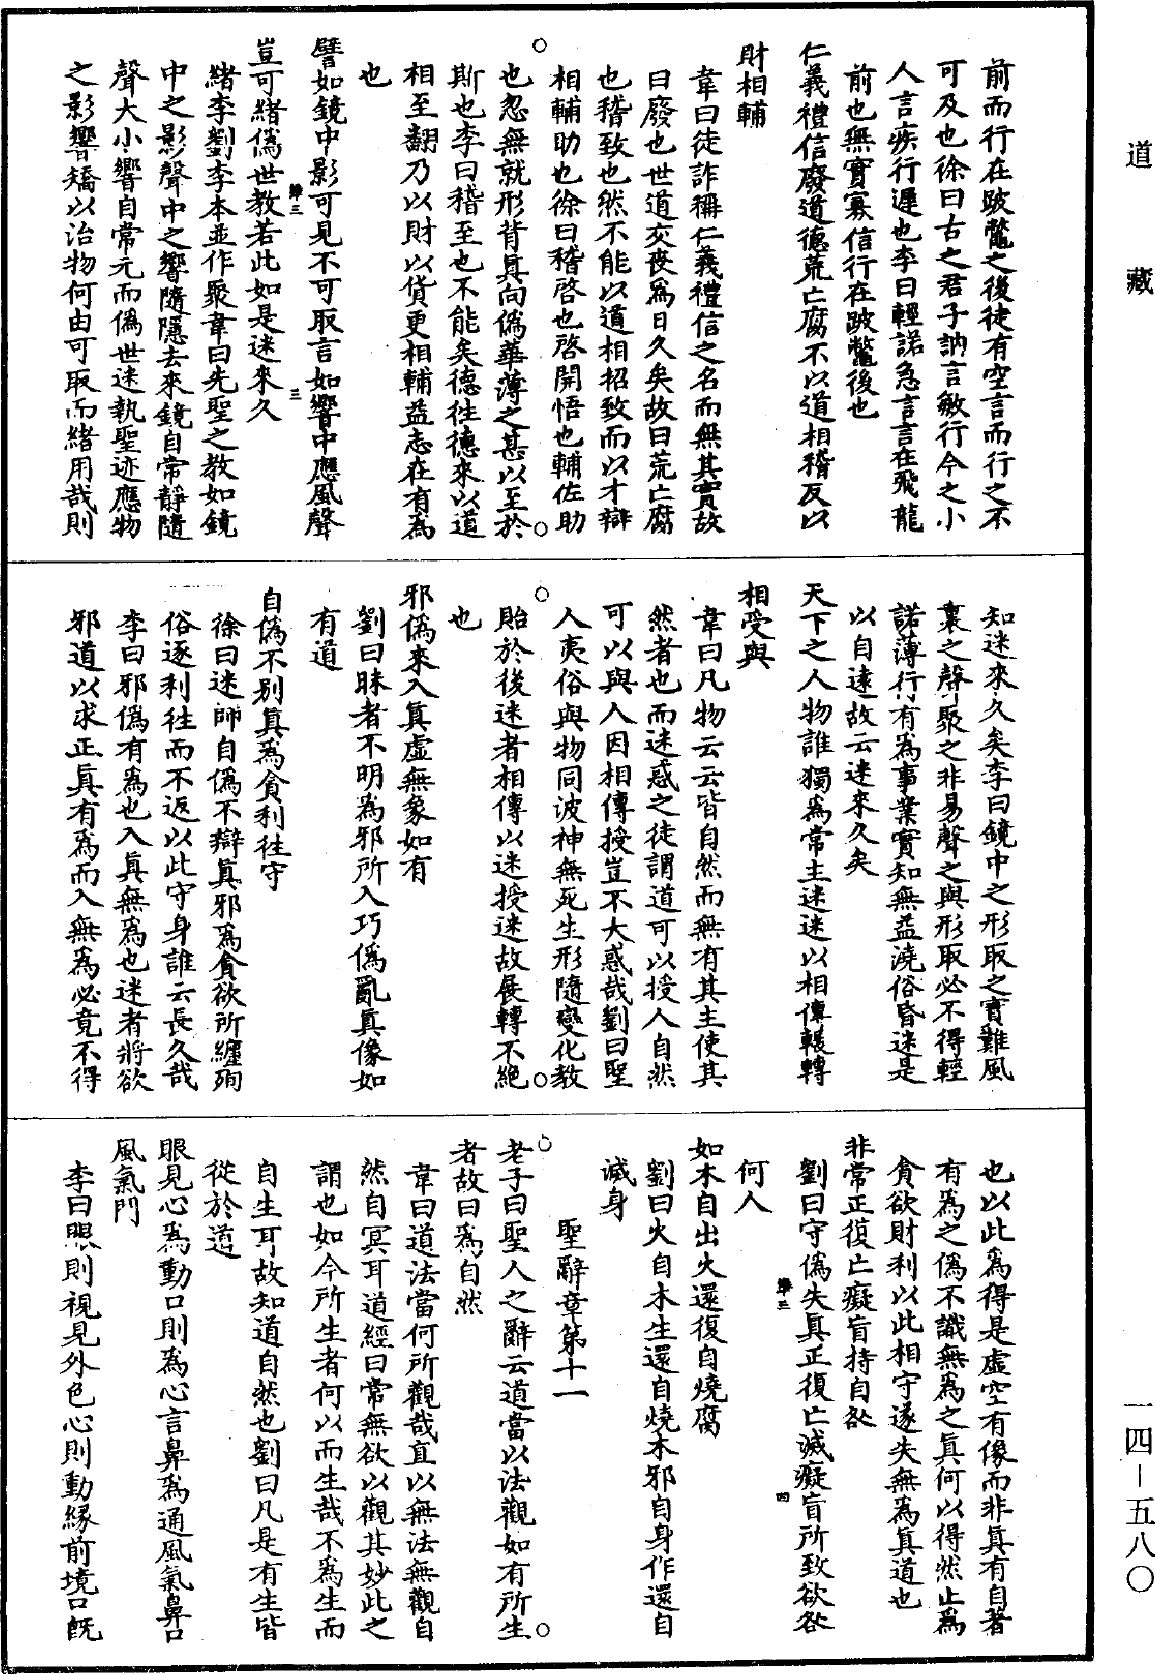 道藏
前而行在跛鼈之後徒有空言而行之不
可及也徐曰古之君子訥言敏行今之小
人言疾行遲也李曰輕諾急言言在飛龍
前也無實寡信行在跛鼈後也
仁義禮信廢道德荒亡腐不以道相稽反以
財相輔
韋曰徒詐稱仁義禮信之名而無其實故
曰廢也世道交喪爲日久矣故曰荒亡腐
也稽致也然不能以道相招致而以才辯
相輔助也徐曰稽啓也啓開悟也輔佐助
也忽無就形背眞向僞華薄之甚以至於
斯也李曰稽至也不能矣德徃德來以道
相至翻乃以財以貨更相輔益志在有爲
也
譬如鏡中影可見不可取言如響中應風聲
豈可緒僞世教若此如是迷來久
緒李劉李本並作聚韋曰先聖之教如鏡
中之影聲中之響隨隱去來鏡自常靜隨
聲大小響自常元而僞世迷執聖迹應物
之影響矯以治物何由可取而緒用哉則
知迷來久矣李曰鏡中之形取之實難風
裏之聲聚之非易聲之與形取必不得輕
諾薄行有爲事業實知無益澆俗昏迷是
以自遠故云迷來久矣
天下之人物誰獨爲常主迷迷以相傳輾轉
相受與
韋曰凡物云云皆自然而無有其主使其
然者也而迷惑之徒謂道可以授人自然
可以與人因相傳授豈不大惑哉劉曰聖
人夷俗與物同波神無死生形隨變化教
貽於後迷者相傳以迷授迷故展轉不絕
也
邪僞來入眞虛無象如有
劉曰昧者不明爲邪所入巧僞亂眞像如
有道
自僞不別眞爲貪利往守
徐曰迷師自僞不辯眞邪爲貪欲所纏殉
俗逐利徃而不返以此守身誰云長久哉
李曰邪僞有爲也入眞無爲也迷者將欲
邪道以求正眞有爲而入無爲必竟不得
也以此爲得是虛空有像而非眞有自著
有爲之僞不識無爲之眞何以得然止爲
貪欲財利以此相守遂失無爲眞道也
非常正復亡癡盲持自咎
劉曰守僞失眞正復亡滅癡盲所致欲咎
何人
如木自出火還復自燒腐
劉曰火自木生還自燒木邪自身作還自
滅身
聖辭章第十一
老子曰聖人之辭云道當以法觀如有所生
者故曰爲自然
韋曰道法當何所觀哉直以無法無觀自
然自冥耳道經曰常無欲以觀其妙此之
謂也如今所生者何以而生哉不爲生而
自生耳故知道自然也劉曰凡是有生皆
從於道
眼見心爲動口則爲心言鼻爲通風氣鼻口
風氣門
李曰眼則視見外色心則動緣前境口旣
一四—五八〇